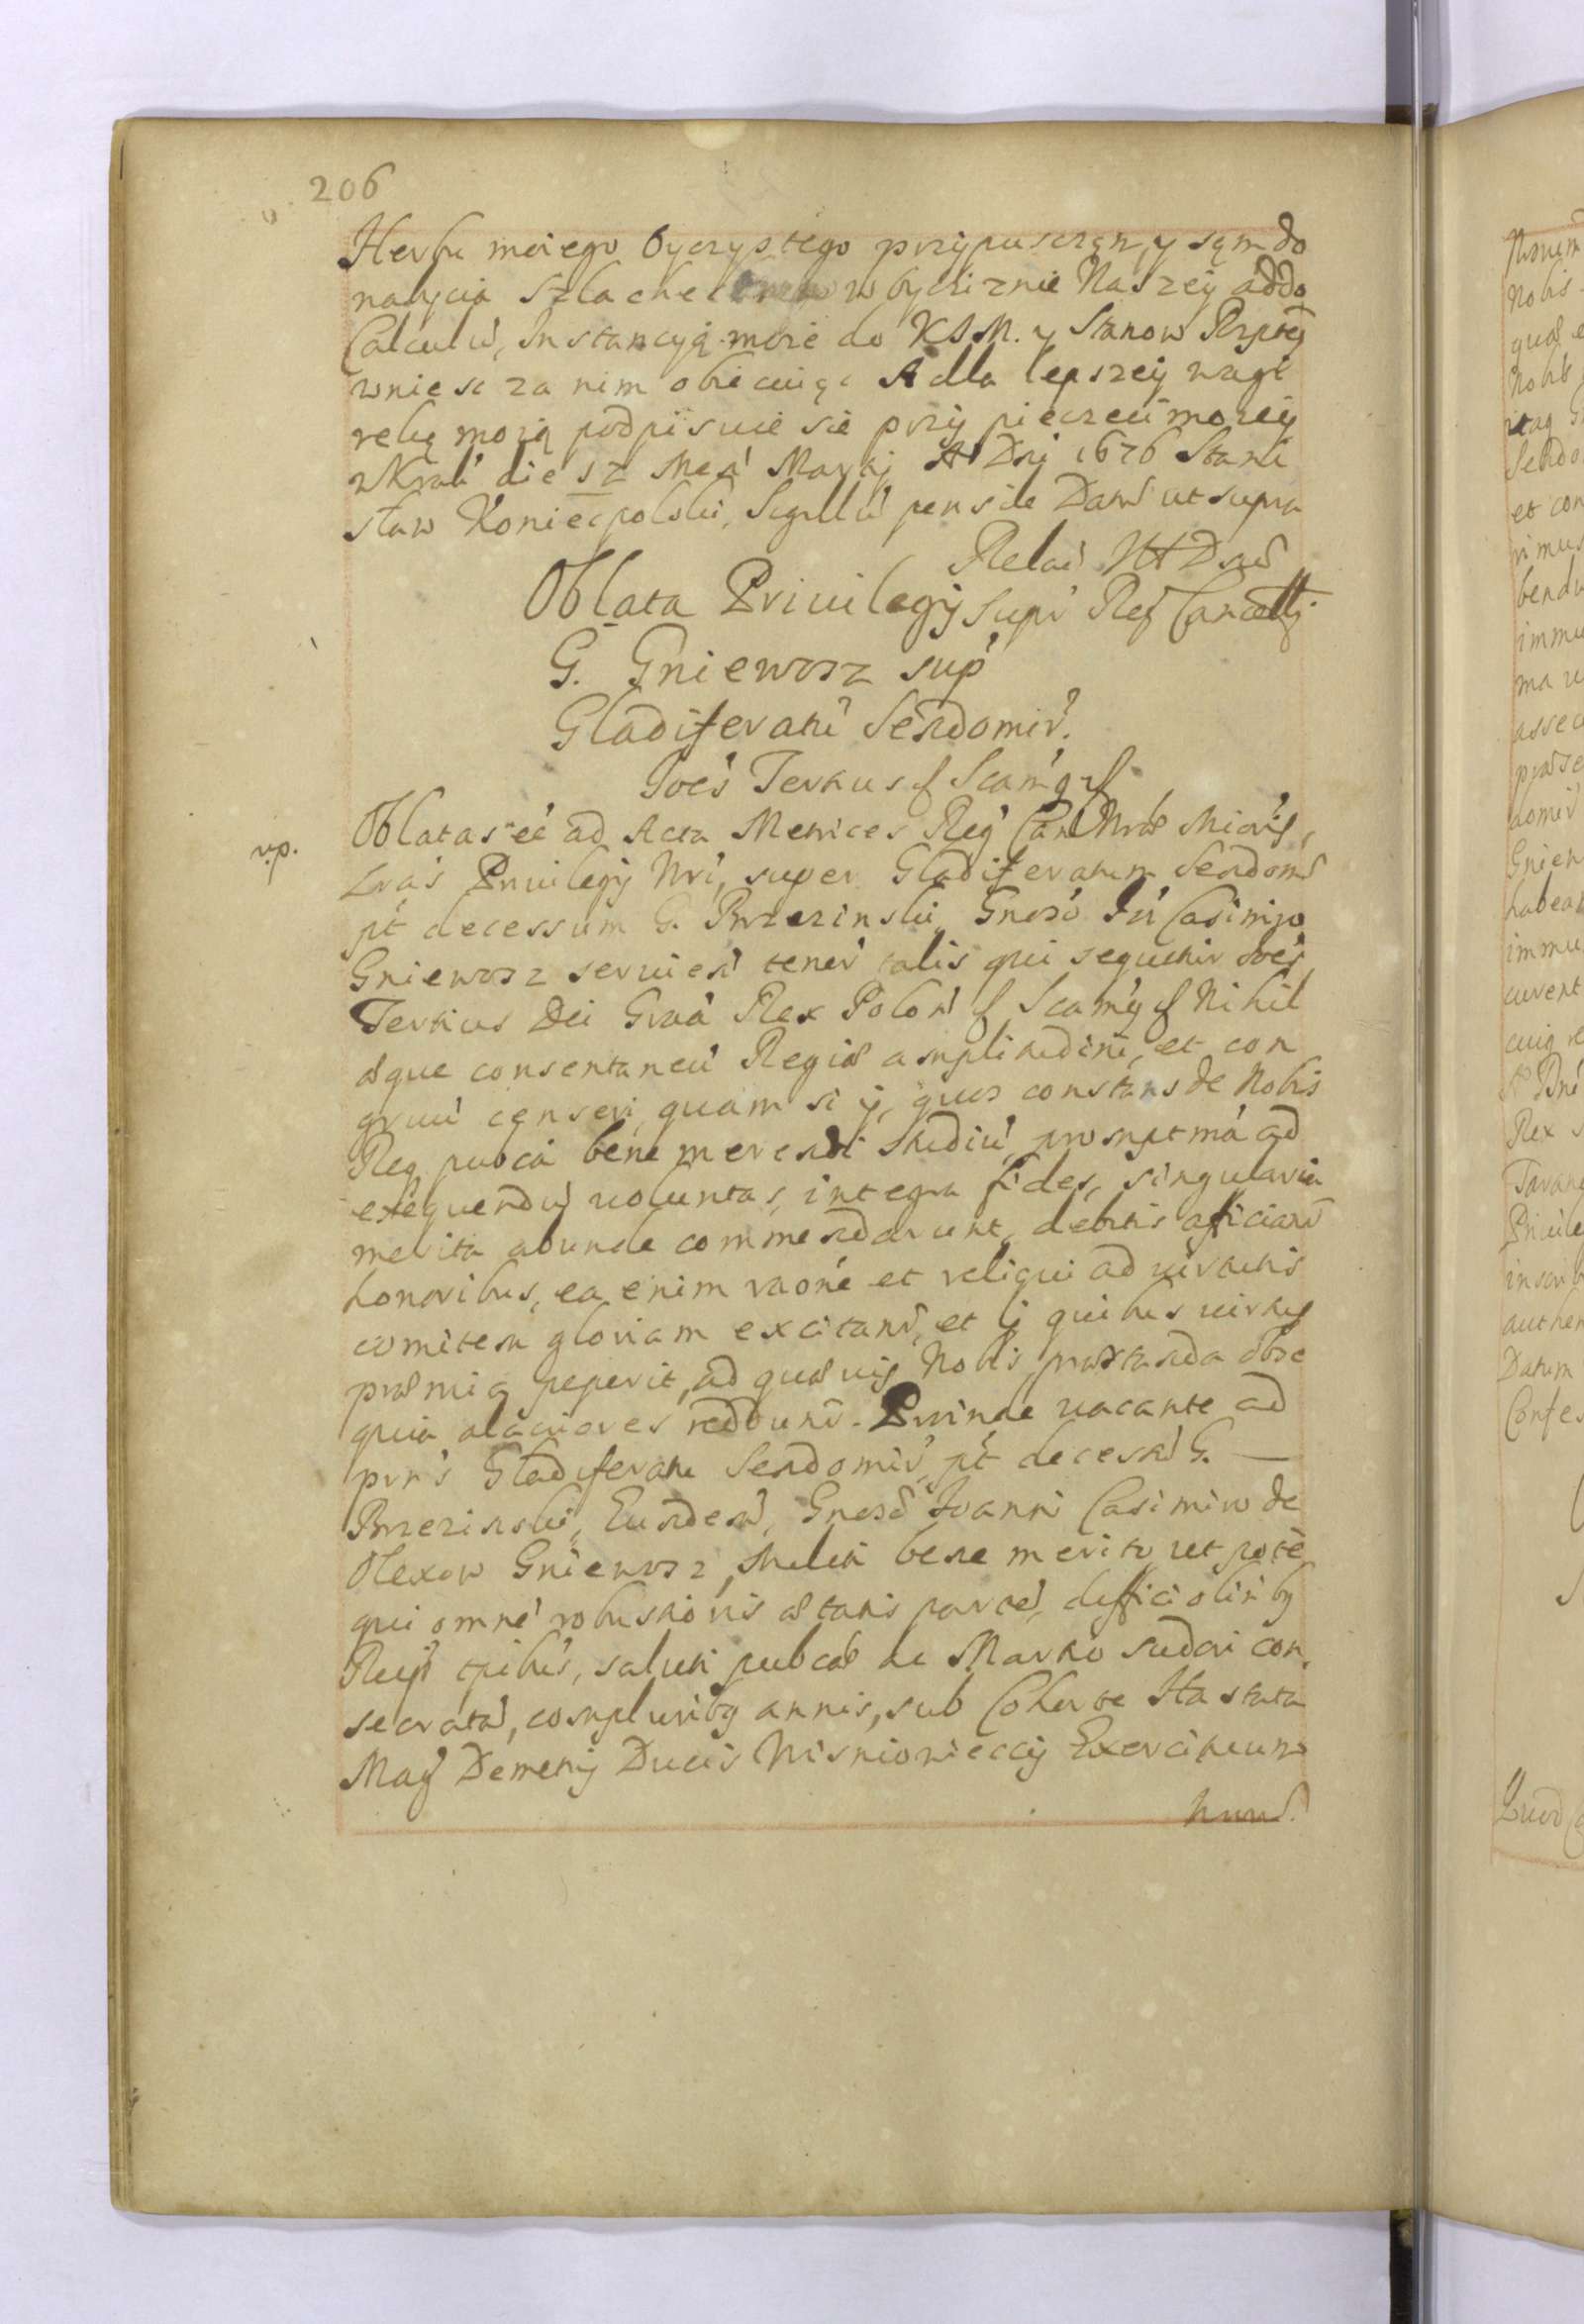 206
Herbu moiego Oyczystego przypuszczęn, y sęm do
nabycia Szlachectwa w Oyczyznie Naszey addo
Calculu, Instancyą moie do KJM. y Stanow Rzptey
wniesc za nim obiecuięc A dla lepszey wagi
ręką moią podpisuię sie przy pieczęci moiey
w Krak' die 5z Men' Martij A' Dni 1676 Stani
sław Koniecpolski, Sigillu' pensile Dat' ut supra
Relat' Ill Dni
Oblata Priuilegij Supr' Reg' Cancellrj
G. Gniewosz sup'
Gladiferatu' Sendomir'.
Joe's Tertius f Scam'q f
vip.
Oblatas e'e ad Acta Metrices Reg' Can Nræ Mioris,
Lras Priuilegij Nri, super Gladiferatum Sendom'
pt' decessum G. Brzezinski, Gnoso Jni Casimiro
Gniewosz seruien' tenor' talis qui sequitur Joe's
Tertius Dei Graâ Rex Polon' f Scam'q f Nihil
æque consentaneu' Regiæ amplitudini, et con
gruu' censeri, quam si ij, quos constans de Nobis
Req publca bene merendi studiu', promptma ad
exequendu' uoluntas, integra fides, singularia
merita abunde commendarunt, debitis afficiant'
honoribus, ea enim raone et reliqui ad uirtutis
comitem gloriam excitant', et ij quibus uirtus
præmia peperit, ad quæuis Nobis præstanda obse
quia alacriores reddunt'. Proinde uacante ad
prns Gladiferatu Sendomir', pt' decesu' G. —
Brzezinski, Eundem, Gnoso Joanni Casimiro de
Olexow Gniewosz, Militi bene merito ut pote
qui omne' robustioris ætatis parte', difficiolirib9
Reip' tpibus, saluti pubcæ ac Martio sudori con
secrata', complurib9 annis, sub Cohorte Hastata
Mag' Demetrij Ducis Wisniowieccij Exercituum
huius'